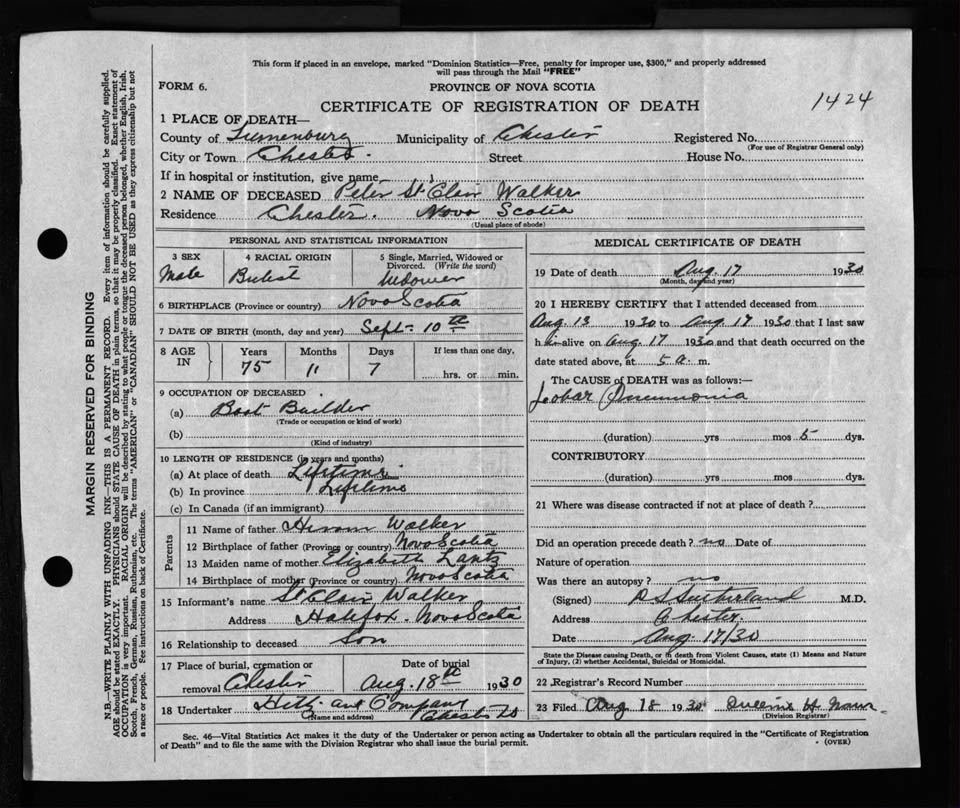 This form if placed in an envelope, marked "Dominion Statistics—Free, penalty for improper use, $300," and properly addressed
will pass through the Mail "FREE"
FORM 6. PROVINCE OF NOVA SCOTIA
CERTIFICATE OF REGISTRATION OF DEATH 1424
1 PLACE OF DEATH—
County of Lunenburg Municipality of Chester Registered No.
(For use of Registrar General only)
City or Town Chester. Street House No.
If in hospital or institution, give name
2 NAME OF DECEASED Peter St Clair Walker
Residence Chester. Nova Scotia
(Usual place of abode)
PERSONAL AND STATISTICAL INFORMATION
3 SEX 4 RACIAL ORIGIN 5 Single, Married, Widowed or
Divorced. (Write the word)
Male Widower
6 BIRTHPLACE (Province or country) Nova Scotia
7 DATE OF BIRTH (month, day and year) Sept- 10th
8 AGE IN Years Months Days If less than one day,
75 11 7 hrs. or min.
9 OCCUPATION OF DECEASED
(a) Boat Builder
(Trade or occupation or kind of work)
(b)
(Kind of industry)
10 LENGTH OF RESIDENCE (in years and months)
(a) At place of death Lifetime
(b) In province Lifetime
(c) In Canada (if an immigrant)
Parents
11 Name of father Hiram Walker
12 Birthplace of father (Province or country) Nova Scotia
13 Maiden name of mother Elizabeth Lantz
14 Birthplace of mother (Province or country) Nova Scotia
15 Informant's name St Clair Walker
Address Halifax. Nova Scotia
16 Relationship to deceased Son
17 Place of burial, cremation or Date of burial
removal Chester Aug. 18th 1930
18 Undertaker Company Chester
(Name and address)
MEDICAL CERTIFICATE OF DEATH
19 Date of death Aug. 17 1930
(Month, day and year)
20 I HEREBY CERTIFY that I attended deceased from
Aug 13 1930 to Aug 17 1930 that I last saw
h im alive on Aug 17 1930 and that death occurred on the
date stated above, at 5 a. m.
The CAUSE of DEATH was as follows:—
Lobar Pneumonia
(duration) yrs mos 5 dys.
CONTRIBUTORY
(duration) yrs mos dys.
21 Where was disease contracted if not at place of death?
Did an operation precede death? no Date of
Nature of operation
Was there an autopsy? no
(Signed) Sutherland M.D.
Address Chester
Date Aug 17/30
State the Disease causing Death, or in death from Violent Causes, state (1) Means and Nature
of Injury, (2) whether Accidental, Suicidal or Homicidal.
22 Registrar's Record Number
23 Filed Aug 18 1930
(Division Registrar)
Sec. 46—Vital Statistics Act makes it the duty of the Undertaker or person acting as Undertaker to obtain all the particulars required in the "Certificate of Registration
of Death" and to file the same with the Division Registrar who shall issue the burial permit. (OVER)
MARGIN RESERVED FOR BINDING
N.B.—WRITE PLAINLY WITH UNFADING INK—THIS IS A PERMANENT RECORD. Every item of information should be carefully supplied.
AGE should be stated EXACTLY. PHYSICIANS should STATE CAUSE OF DEATH in plain terms, so that it may be properly classified. Exact statement of
OCCUPATION is very important. RACIAL ORIGIN will be described by stating to what people or tongue the deceased person belonged, whether English, Irish,
Scotch, French, German, Russian, Ruthenian, etc. The terms "AMERICAN" or "CANADIAN" SHOULD NOT BE USED as they express citizenship but not
a race or people. See instructions on back of Certificate.